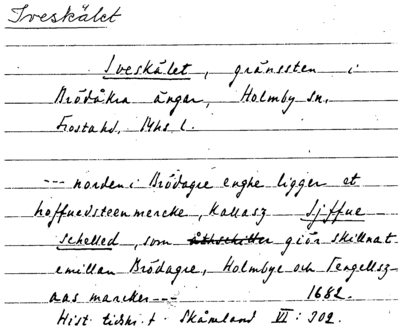 Iveskälet
Iveskälet, gränssten i
Brödåkra ängar, Holmby sn.
Frosta hd. Mhs l.
--- norden i Brödagre enghe ligger et
hoffuedsteenmercke, Kallasz Sjffue
schelled, som åthschiller giör skillnat
emillan Brödagre, Holmbye och Tengellsz-
aas marcker --- 1682.
Hist. tidskr. f. Skåneland VI: 302.